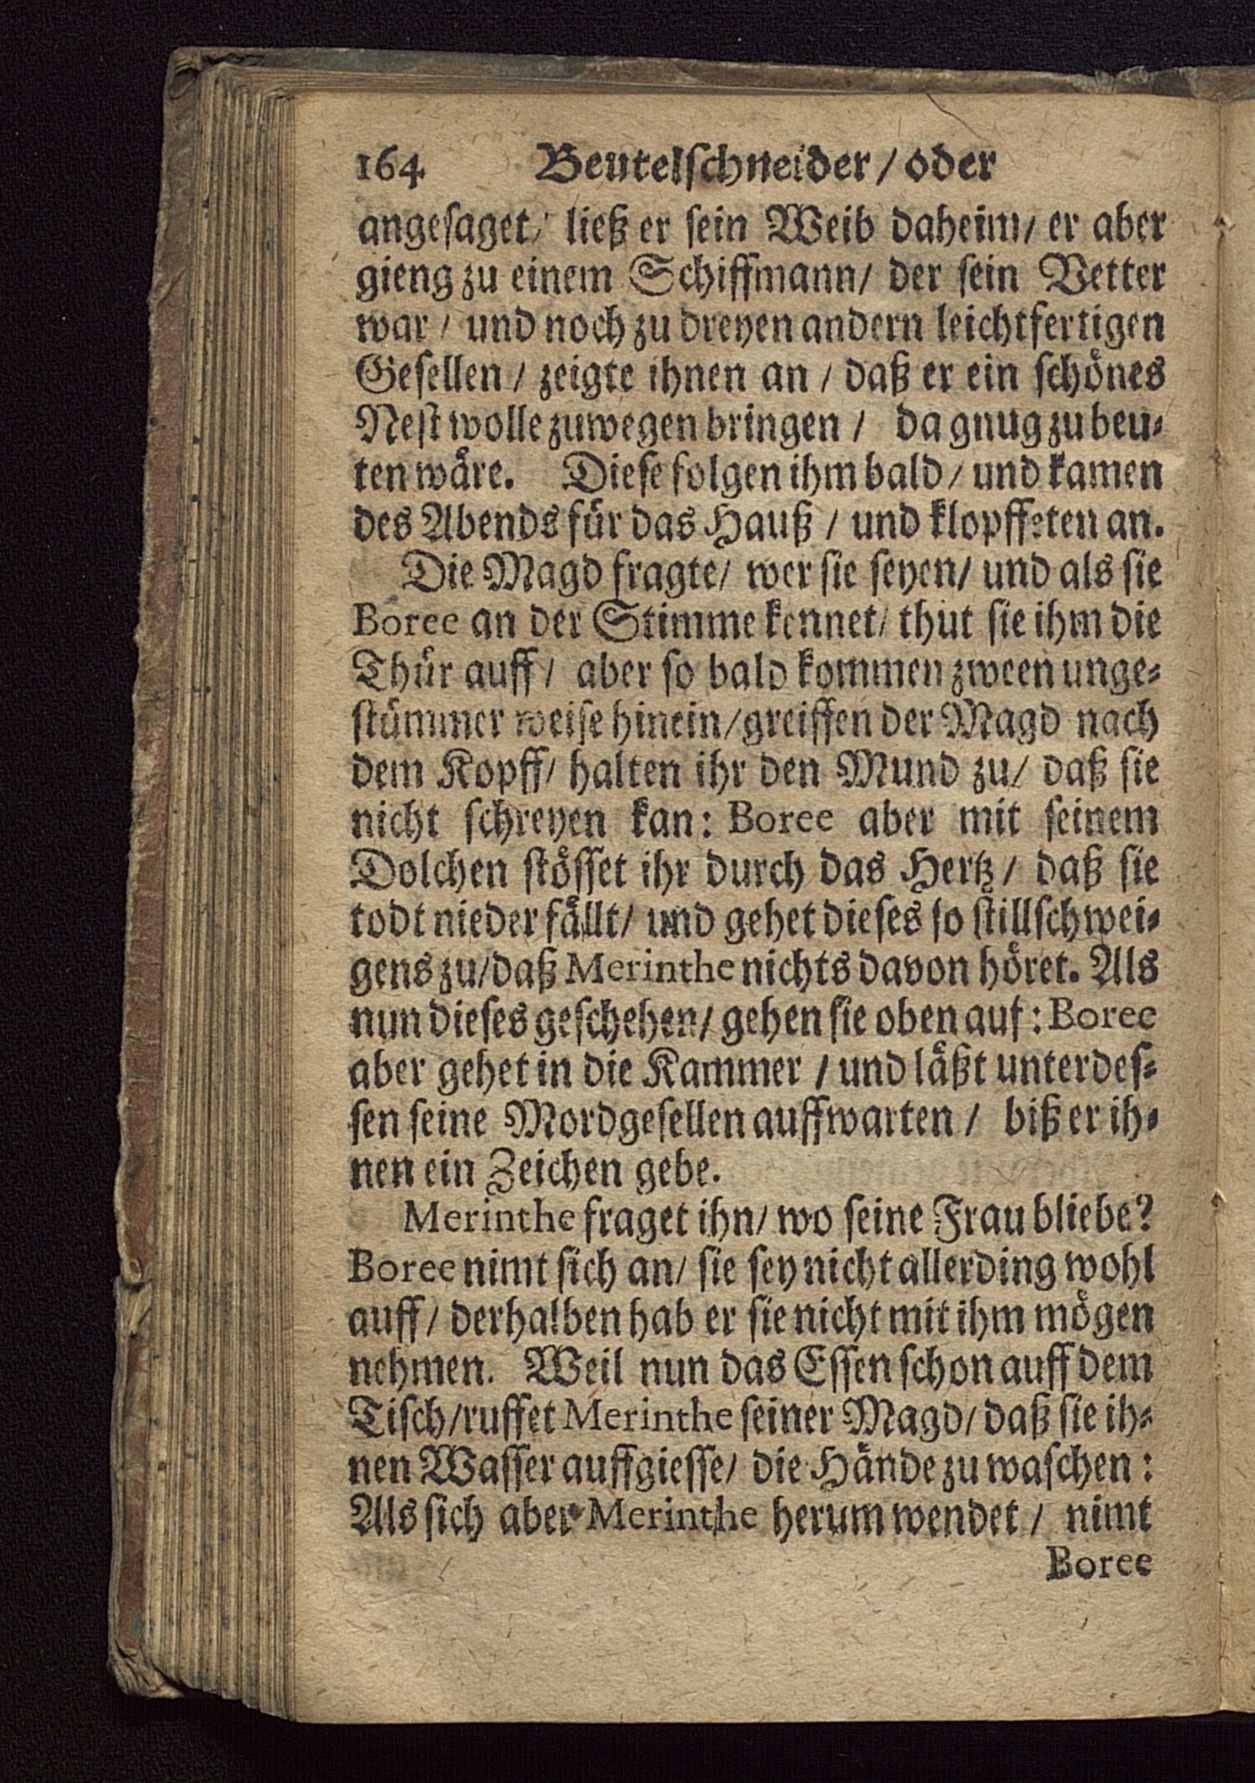 164 Beutelschneider / oder
angesaget / ließ er sein Weib daheim / er aber
gieng zu einem Schiffmann / der sein Vetter
war / und noch zu dreyen andern leichtfertigen
Gesellen / zeigte ihnen an / daß er ein schönes
Nest wolle zuwegen bringen / da gnug zu beu⸗
ten wäre. Diese folgen ihm bald / und kamen
des Abends für das Hauß / und klopffeten an.
Die Magd fragte / wer sie seyen / und als sie
Boree an der Stimme kennet / thut sie ihm die
Thür auff / aber so bald kommen zween unge⸗
stümmer weise hinein / greiffen der Magd nach
dem Kopff / halten ihr den Mund zu / daß sie
nicht schreyen kan: Boree aber mit seinem
Dolchen stösset ihr durch das Hertz / daß sie
todt nieder fällt / und gehet dieses so stillschwei⸗
gens zu / daß Merinthe nichts davon höret. Als
nun dieses geschehen / gehen sie oben auf: Boree
aber gehet in die Kammer / und läßt unterdes⸗
sen seine Mordgesellen auffwarten / biß er ih⸗
nen ein Zeichen gebe.
Merinthe fraget ihn / wo seine Frau bliebe?
Boree nimt sich an / sie sey nicht allerding wohl
auff / derhalben hab er sie nicht mit ihm mögen
nehmen. Weil nun das Essen schon auff dem
Tisch / ruffet Merinthe seiner Magd / daß sie ih⸗
nen Wasser auffgiesse / die Hände zu waschen:
Als sich aber Merinthe herum wendet / nimt
Boree